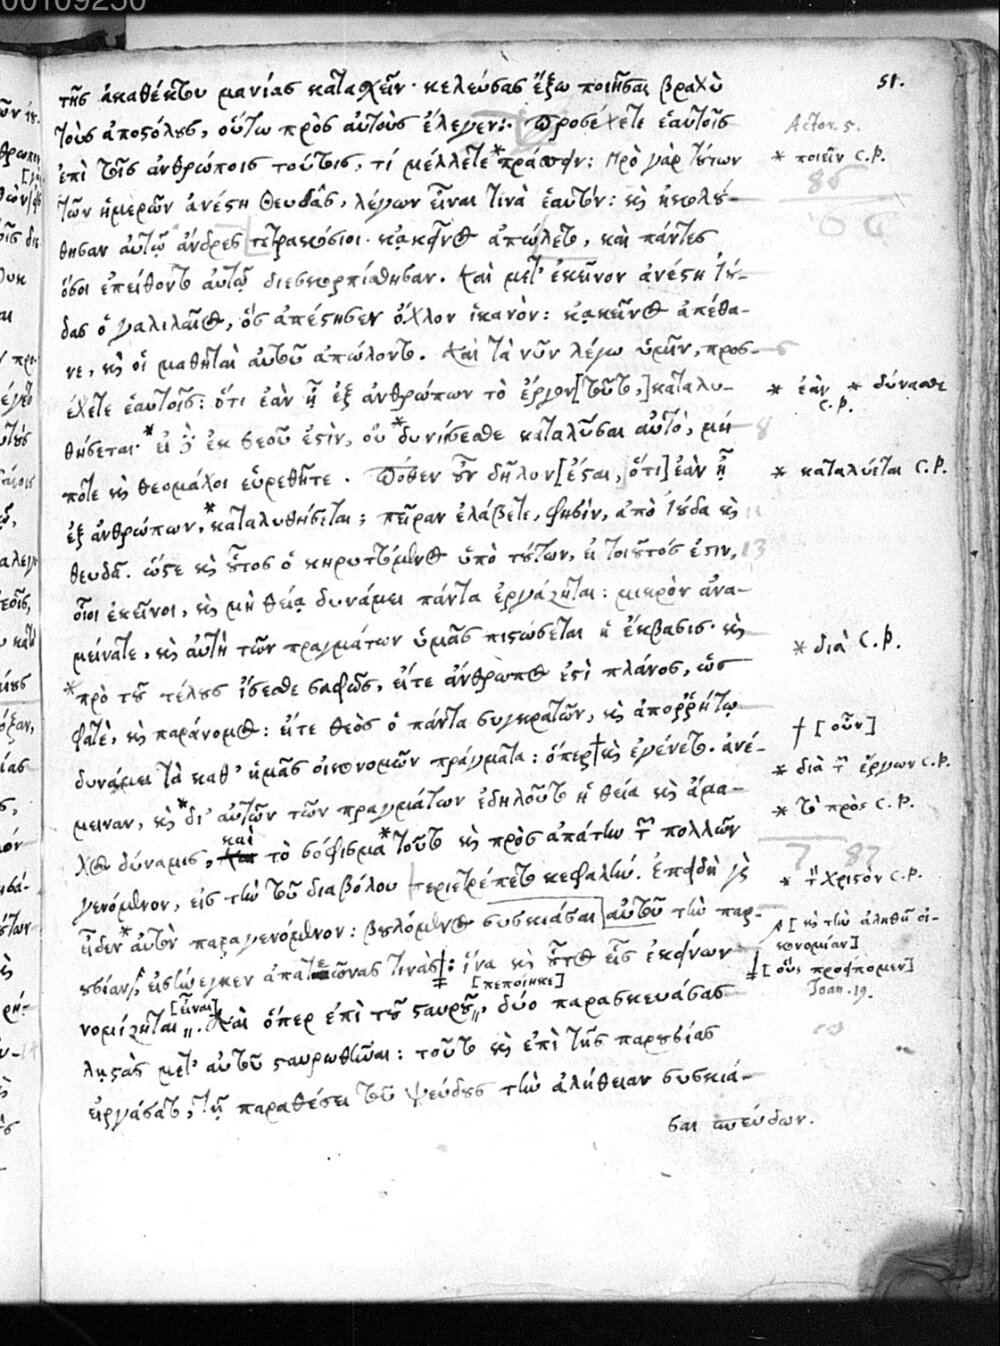 00109250
51.
τῆς ἀκαθέκτου μανίας κατασχεῖν· κελεύσας ἔξω ποιῆσαι βραχὺ
τοὺς ἀποστόλους, οὕτω πρὸς αὐτοὺς ἔλεγεν: Προσέχετε ἑαυτοῖς
Actor. 5.
ἐπὶ τοῖς ἀνθρώποις τούτοις, τί μέλλετε * πράσσειν: Πρὸ γὰρ τούτων
* ποιεῖν C.P.
τῶν ἡμερῶν ἀνέστη Θευδᾶς, λέγων εἶναι τινὰ ἑαυτόν: καὶ ἠκολού-
θησαν αὐτῷ ἄνδρες τετρακόσιοι· κᾀκεῖνος ἀπώλετο, καὶ πάντες
ὅσοι ἐπείθοντο αὐτῷ διεσκορπίσθησαν. Καὶ μετ' ἐκεῖνον ἀνέστη Ἰού-
δας ὁ γαλιλαῖος, ὃς ἀπέστησεν ὄχλον ἱκανόν: κᾀκεῖνος ἀπέθα-
νε, καὶ οἱ μαθηταὶ αὐτοῦ ἀπώλοντο. Καὶ τὰ νῦν λέγω ὑμῖν, προσ-
έχετε ἑαυτοῖς: ὅτι ἐὰν ᾖ ἐξ ἀνθρώπων τὸ ἔργον [τοῦτο,] καταλυ-
* ἐὰν * δύνασθε C.P.
θήσεται· * εἰ δὲ ἐκ θεοῦ ἐστὶν, οὐ * δυνήσεσθε καταλῦσαι αὐτὸ, μή
ποτε καὶ θεομάχοι εὑρεθῆτε. Πόθεν οὖν δῆλον [ἔσται, ὅτι] ἐὰν ᾖ
* καταλύεται C.P.
ἐξ ἀνθρώπων, * καταλυθήσεται; πεῖραν ἐλάβετε, φησὶν, ἀπὸ Ἰούδα καὶ
θευδᾶ. ὥστε καὶ οὗτος ὁ κηρυττόμενος ὑπὸ τούτων, εἰ τοιοῦτός ἐστιν,
οἷοι ἐκεῖνοι, καὶ μὴ θείᾳ δυνάμει πάντα ἐργάζηται: μικρὸν ἀνα-
μείνατε, καὶ αὐτὴ τῶν πραγμάτων ὑμᾶς πιστώσεται ἡ ἔκβασις· καὶ
* πρὸ τοῦ τέλους ἴσεσθε σαφῶς, εἴτε ἄνθρωπος ἐστὶ πλάνος, ὥς
* διὰ C.P.
φατὲ, καὶ παράνομος: εἴτε θεὸς ὁ πάντα συγκρατῶν, καὶ ἀποῤῥήτῳ
δυνάμει τὰ καθ' ἡμᾶς οἰκονομῶν πράγματα: ὅπερ † καὶ ἐγένετο. ἀνέ-
† [οὖν]
μειναν, καὶ * δι' αὐτῶν τῶν πραγμάτων ἐδηλοῦτο ἡ θεία καὶ ἄμα-
* διὰ τῶν ἔργων C.P.
χος δύναμις, καὶ τὸ σόφισμα * τοῦτο καὶ πρὸς ἀπάτην τῶν πολλῶν
* τὸ πρὸς C.P.
γενόμενον, εἰς τὴν τοῦ διαβόλου περιετρέπετο κεφαλήν. Ἐπειδὴ γὰρ
εἶδεν * αὐτὸν παραγενόμενον: βουλόμενος συσκιάσαι αὐτοῦ τὴν παρ-
* τὸν Χριστὸν C.P.
ουσίαν, εἰσήνεγκεν ἀπατεῶνας τινὰς ‡: ἵνα καὶ οὗτος εἷς ἐκείνων
[καὶ τὴν ἀληθῆ οἰ-
κονομίαν]
‡ [οὓς προείπομεν]
νομίζηται [εἶναι]. Καὶ ὅπερ ἐπὶ τοῦ σταυροῦ [πεποίηκε], δύο παρασκευάσας
Joan. 19.
λῃστὰς μετ' αὐτοῦ σταυρωθῆναι: τοῦτο καὶ ἐπὶ τῆς παρουσίας
εἰργάσατο, τῇ παραθέσει τοῦ ψεύδους τὴν ἀλήθειαν συσκιά-
σαι σπεύδων.